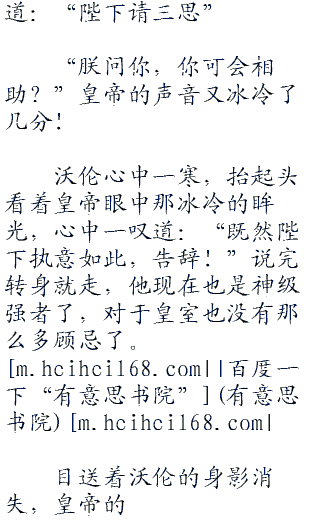 道：“陛下请三思”
“朕问你，你可会相
助？”皇帝的声音又冰冷了
几分！
沃伦心中一寒，抬起头
看着皇帝眼中那冰冷的眸
光，心中一叹道：“既然陛
下执意如此，告辞！”说完
转身就走，他现在也是神级
强者了，对于皇室也没有那
么多顾忌了。
[m.hcihci168.com||百度一
下“有意思书院”](有意思
书院)[m.hcihci168.com|
目送着沃伦的身影消
失，皇帝的